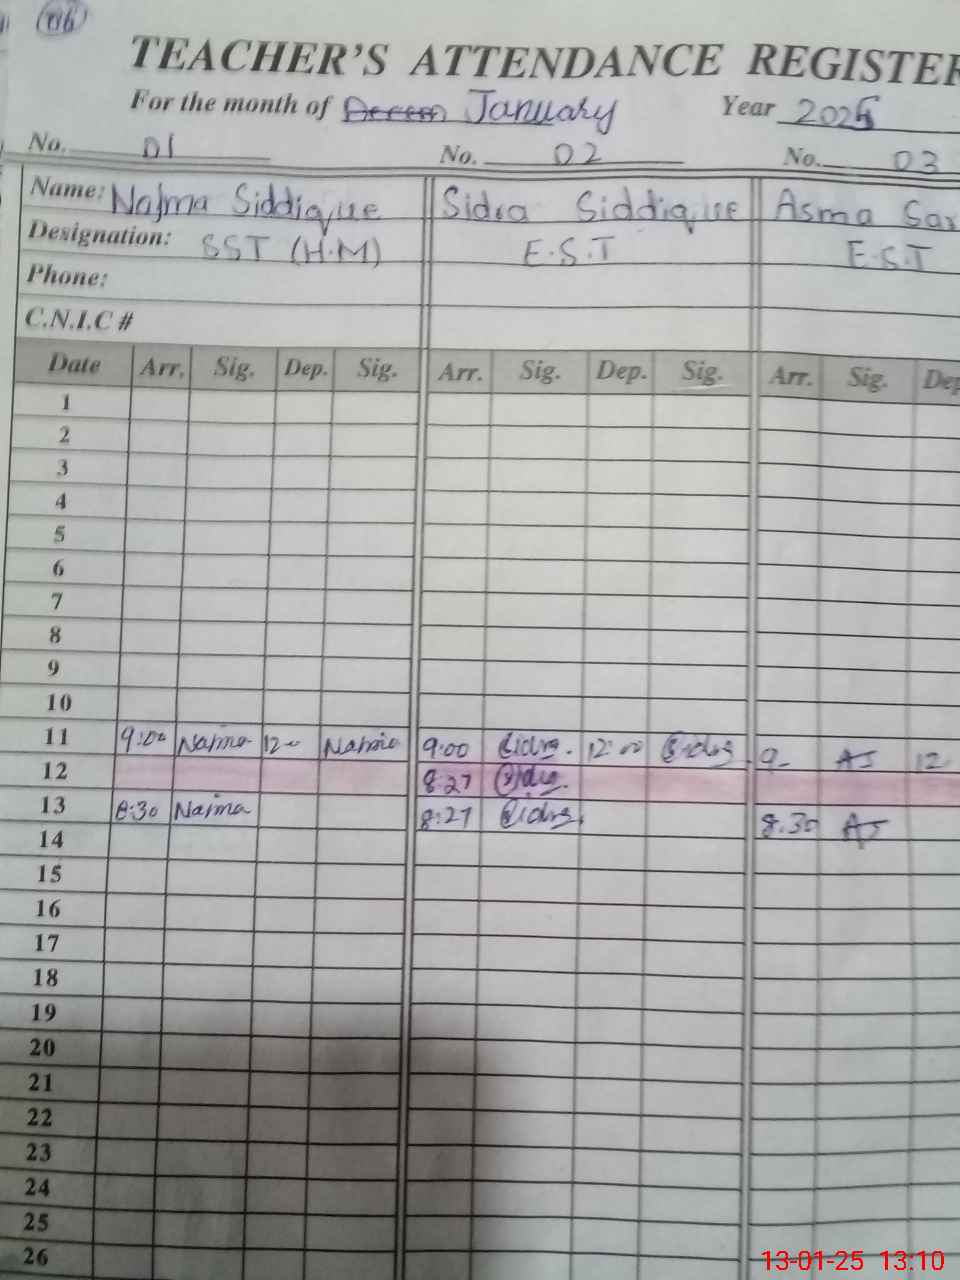 TEACHER'S ATTENDANCE REGISTER
For the month of January Year 2025
No. 01 No. 02 No. 03
Name: Najma Siddique Sidra Siddique Asma Sar
Designation: SST (H.M) E.S.T E.S.T
Phone:
C.N.I.C #
Date Arr. Sig. Dep. Sig. Arr. Sig. Dep. Sig. Arr. Sig. Dep
1
2
3
4
5
6
7
8
9
10
11 9:00 Najma 12-0 Najma 9:00 Sidra. 12:00 Sidra 9- AS 12
12 8:27 Sidra.
13 8:30 Najma 8:27 Sidra 8.30 AS
14
15
16
17
18
19
20
21
22
23
24
25
26
13-01-25 13:10